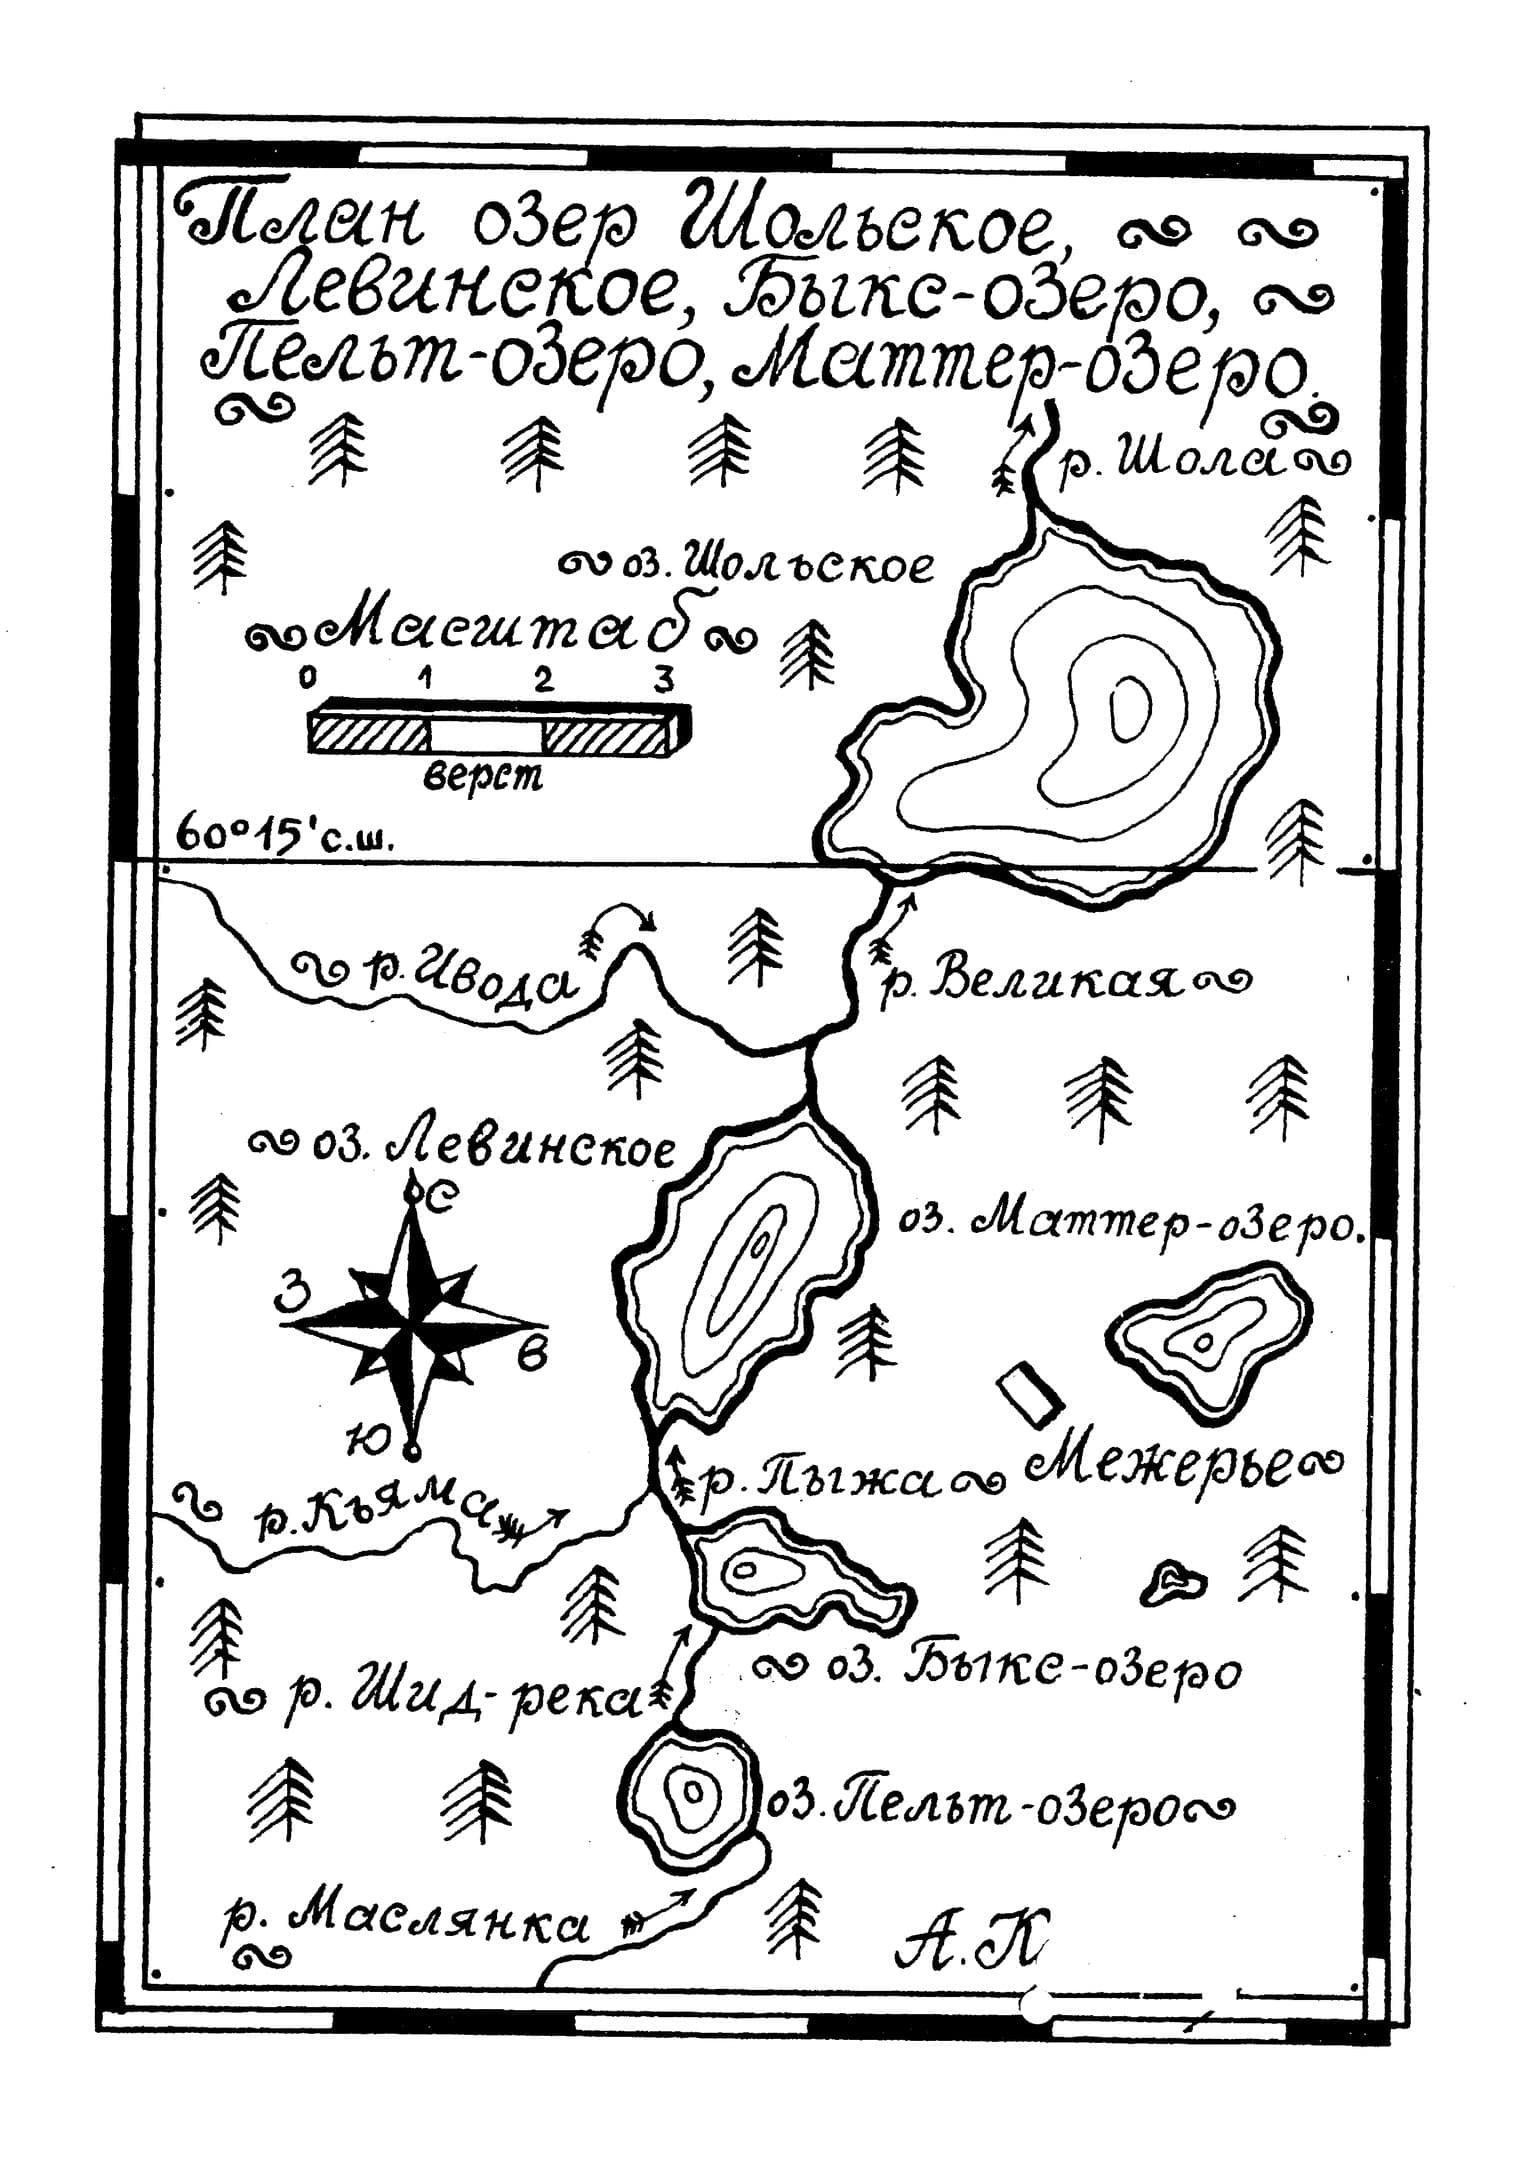 План озер Шольское,
Левинское, Быкс-озеро,
Пельт-озеро, Маттер-озеро.
р. Шола
оз. Шольское
Масштаб
0 1 2 3
верст
60°15'с.ш.
р. Ивода
р. Великая
оз. Левинское
С
оз. Маттер-озеро.
З
В
Ю
Межерье
р. Пыжа
р. Кьяма
оз. Быкс-озеро
р. Шид-река
оз. Пельт-озеро
р. Маслянка
А.К